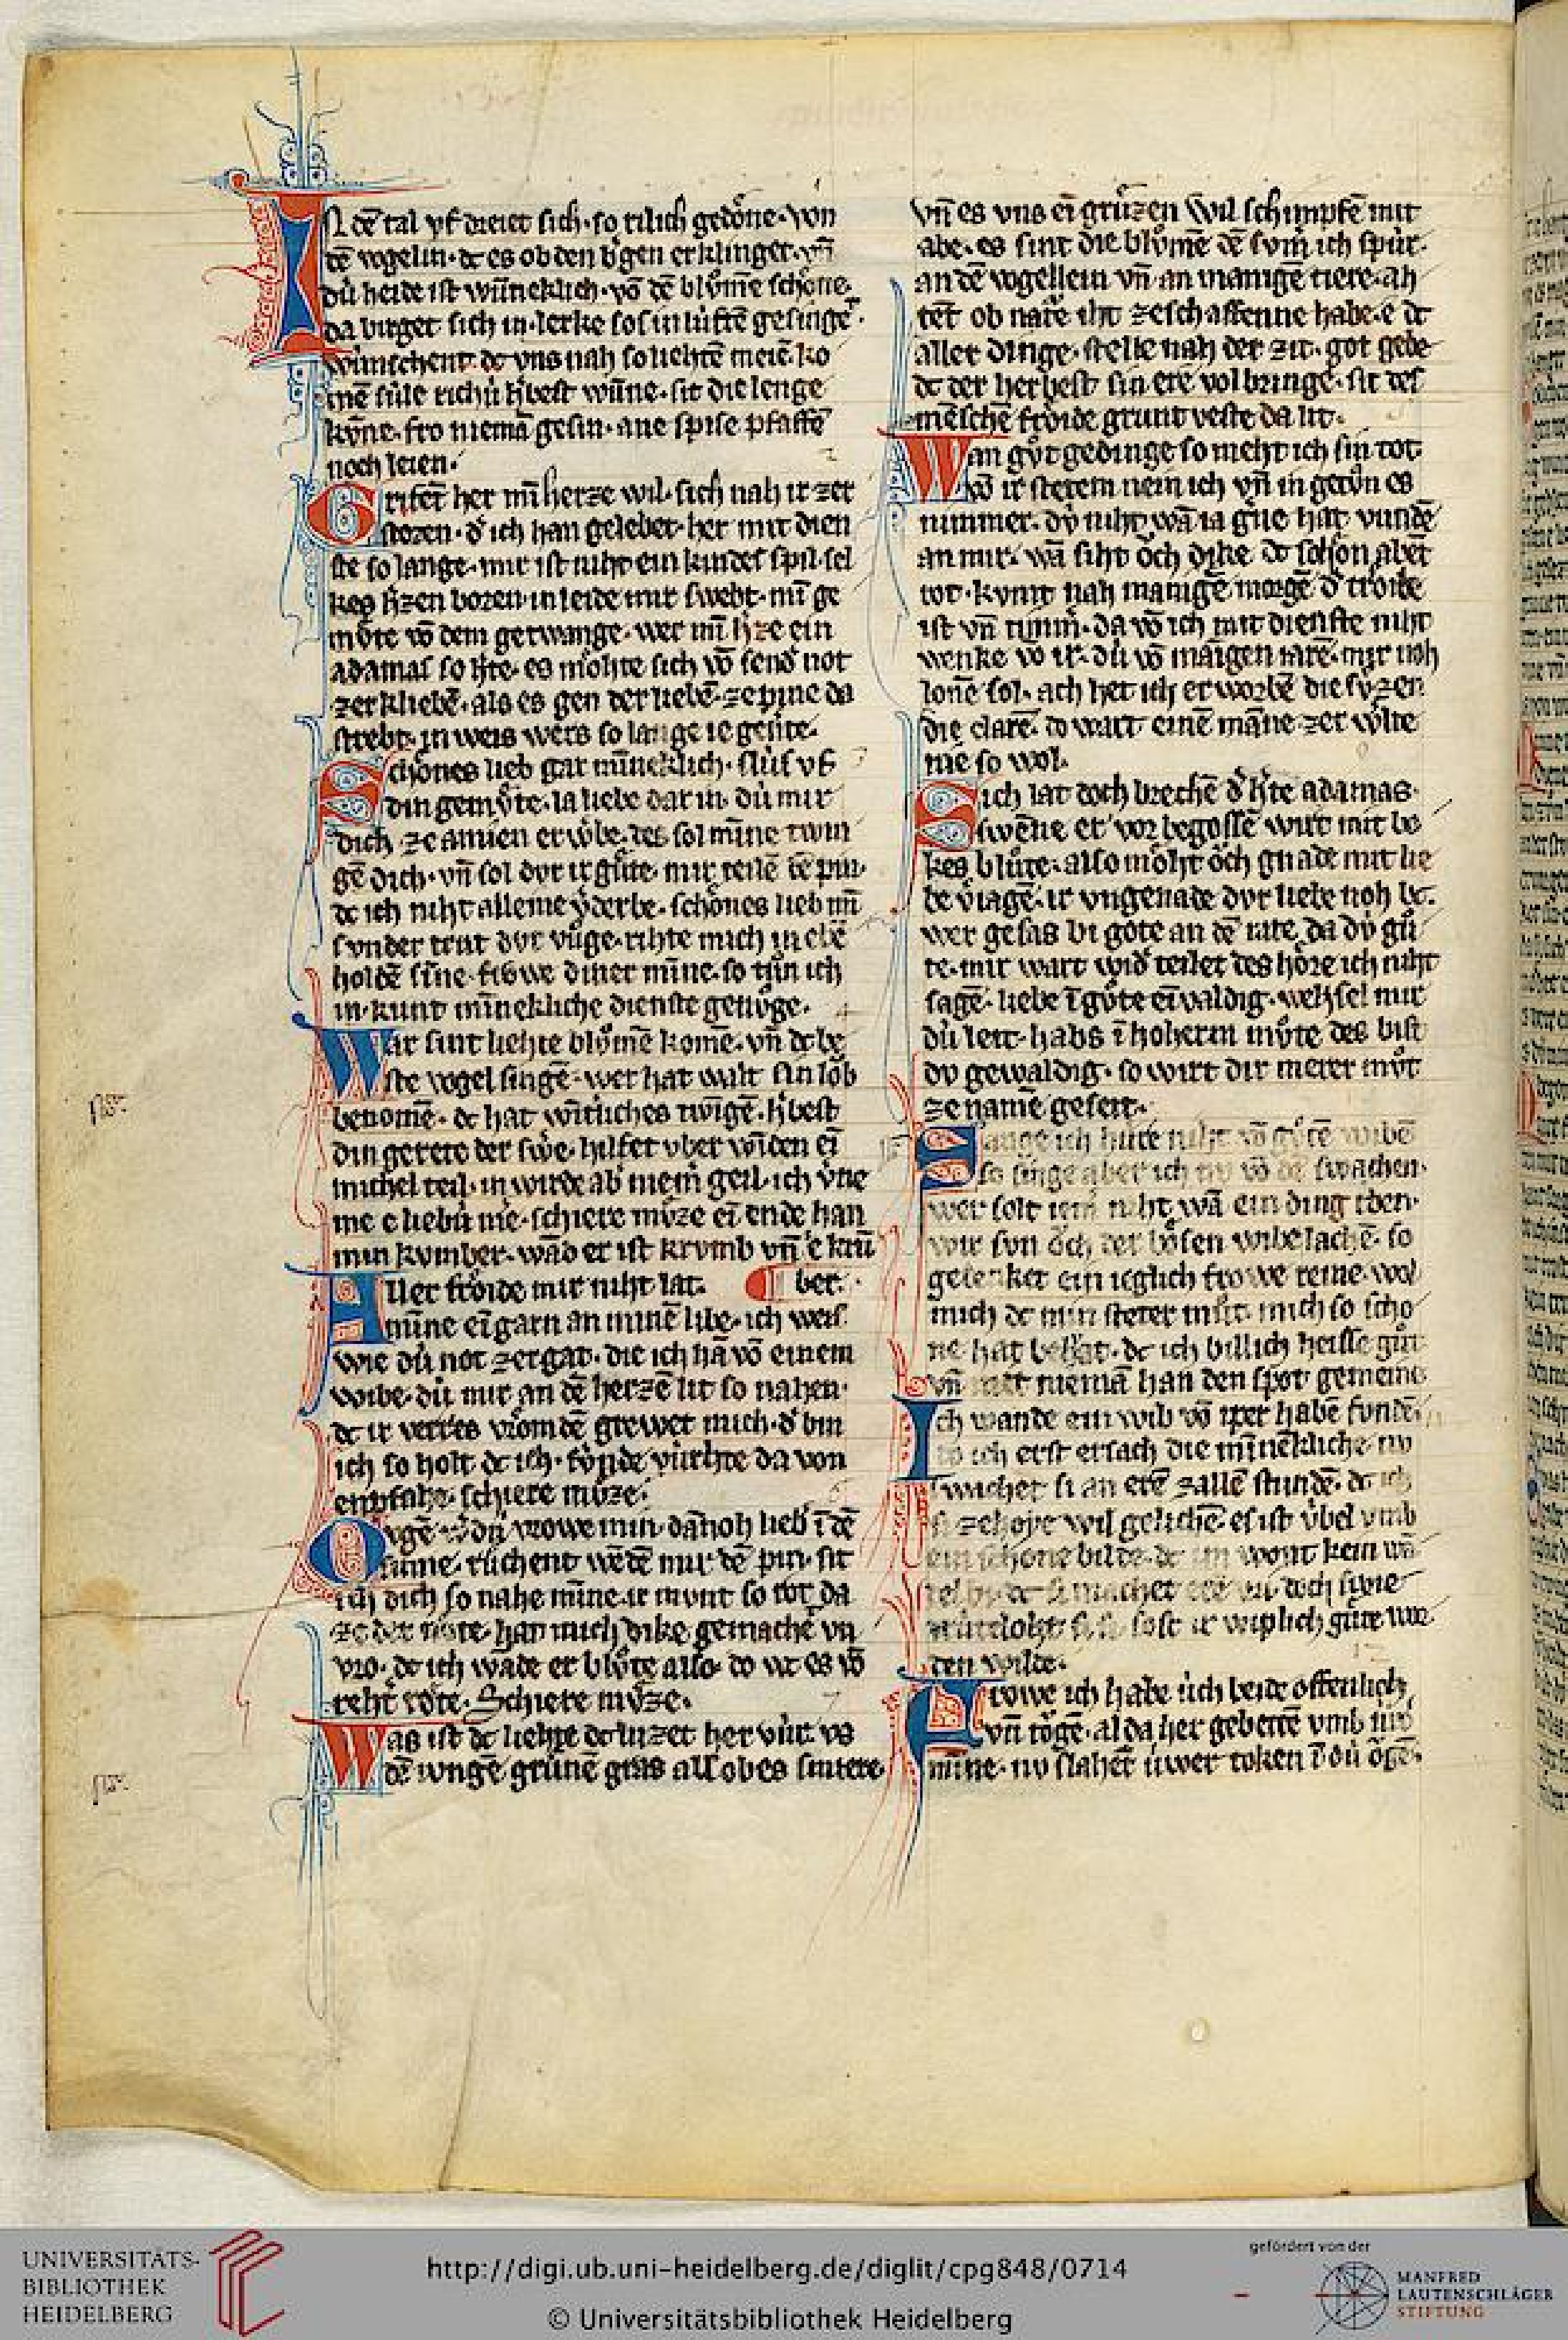 IN dē tal vf dreiet sich · so rilich gedoͤne · von
dē vogelin · dc es ob den bergen erklinget · vn̄
dú heide ist wūneklich · vō dē bluͦmē schoͤne
da birget sich in · lerke sos in lúftē gesinget ·
wúnschent · dc vns nah so liehtē meiē · ko
mē súle richú h̾best wūne · sit die lenge
kvnē · fro niemā gesin · ane spise pfaffē
noch leien ·
Grifet her mī herze wil · sich nah ir zer
stoͤren · d̾ ich han gelebet · her mit dien
ste so lange · mir ist niht ein kindes spil · sel
kes h̾zen boren · in leide mir swebt · mī ge
muͤte vō dem getwange · wer mī h̾ze ein
adamas so h̾te · es moͤhte sich vō send̾ not
zerkliebē · als es gen der liebē · ze pine da
strebt · in weis wers so lange ie gerite ·
Schoͤnes lieb gar minneklich · slús vf
din gemuͤte · la liebe dar in · dú mir
dich · ze amien erwbe · des sol mīne twin
gē dich · vn̄ sol dvr ir guͤte · mir teilē dē pin ·
dc ich niht alleine v̾derbe · schoͤnes lieb mī
svnder trut dvr vuͦge · rihte mich in ebē
holdē sinne · frowe diner mīne · so tuͦn ich
in · kunt mīnekliche dienste genuͦge ·
War sint liehte bluͦmē komē · vn̄ dc be
ste vogel singē · wer hat walt sin lob
benomē · dc hat wīterliches twingē · h̾best
din gerete der swe · hilfet vber winden ei
michel teil · in wirde ab niem̄ geil · ich v̾ne
me e liebú me · schiere muͤze eī ende han
min kvmber · wād er ist krvmb vn̄ e krū
Aller froͤide mir niht lat · ¶ ber ·
mīne eī garn an minē libe · ich weis
wie dú not zergat · die ich hā vō einem
wibe · dú mir an dē herzē lit so nahen ·
dc ir verres vroͤmdē grewet mich · d̾ bin
ich so holt dc ich · svnde vúrhte da von
enpfahe · schiere muͤze ·
Ovgē w dú vrowe min · dānoh lieb ī dē
sinne · ruͦchent wēdē mir dē pin · sit
ich dich so nahe mīne · ir mvnt so rot da
ze der note · hat mich dike gemachē vn
vro · dc ich wāde er bluͦte also · do wc es vō
reht roͤte · Schiere muͤze ·
Was ist dc liehte dc luzet her vúr · vs
dē ivngē gruͤnē gras als obes smiere
vn̄ es vns eī gruͤzen wil schimpfē mit
abe · es sint die bluͦmē dē svm̄ ich spúr ·
an dē vogellein vn̄ an manigē tiere · ah
tet ob natē iht ze schaffenne habe · e dc
aller dinge · stelle nah der zit · got gebe
dc der herbest sin ere vol bringe · sit des
mēschē froͤide grunt veste da lit ·
Wan guͦt gedinge so meht ich sin tot
vō ir sterem nein ich vn̄ in getuͦn es
nimmer · dv niht wā ia gne hat vundē
an mir · wā siht oͤch dike dc schoͤn abēt
rot · kvmt nah manigē morgē d̾ troͤibe
ist vn̄ timm̄ · da vō ich mit dienste niht
wenke vō ir · dú vō manigen iarē · mir noh
lonē sol · ach het ich erworbē die suͤzen
die clarē · so wart einē māne zer wlte
nie so wol ·
Sich lat doch brechē d̾ h̾te adamas
swēne er vor begossē wirt mit bo
kes bluͤte · also moͤht oͤch gnade mit lie
be v̾iagē · ir vngenade dvr liebe noh bc ·
wer gesas bi gote an dē rate da dv guͦ
te · mir wart wid̾ teilet des hoͤre ich niht
sagē · liebe ī guͤte eī waldig · wehsel mir
dú leit · habs ī hoherm muͤte des bist
dv gewaldig · so wirt dir merer muͦt
ze namē geseit ·
Sange ich hute niht vō guͦtē wibē
so singe aber ich nv vō dē swachen ·
wer solt iem̄ niht wā ein ding triben
wir svn oͤch der boͤsen wibe lachē · so
gedenket ein ieglich frowe reine · wol
mich dc min steter muͦt · mich so scho
ne hat behuͦt · dc ich billich heisse guͦt
vn̄ mit niemā han den spot gemeine
Ich wande ein wib vō iper habē fundē
do ich erst ersach die mīnekliche nv
swachet si an erē zallē stundē · dc ich
si zehoye wil gelichē es ist v́bel vmb
ein schoͤne bilde · dc im wont kein wā
del bi · dc machet doch swie
si so ist ir wiplich guͤte wor
den wilde ·
Frowe ich habe úch beide offenlich
vn̄ tovgē · al da her gebetē vmb úw̾
mīne · nv slahēt úwer token ī dú oͤgē ·
UNIVERSITÄTS-
BIBLIOTHEK
HEIDELBERG
http://digi.ub.uni-heidelberg.de/diglit/cpg848/0714
© Universitätsbibliothek Heidelberg
gefördert von der
MANFRED
LAUTENSCHLÄGER
STIFTUNG